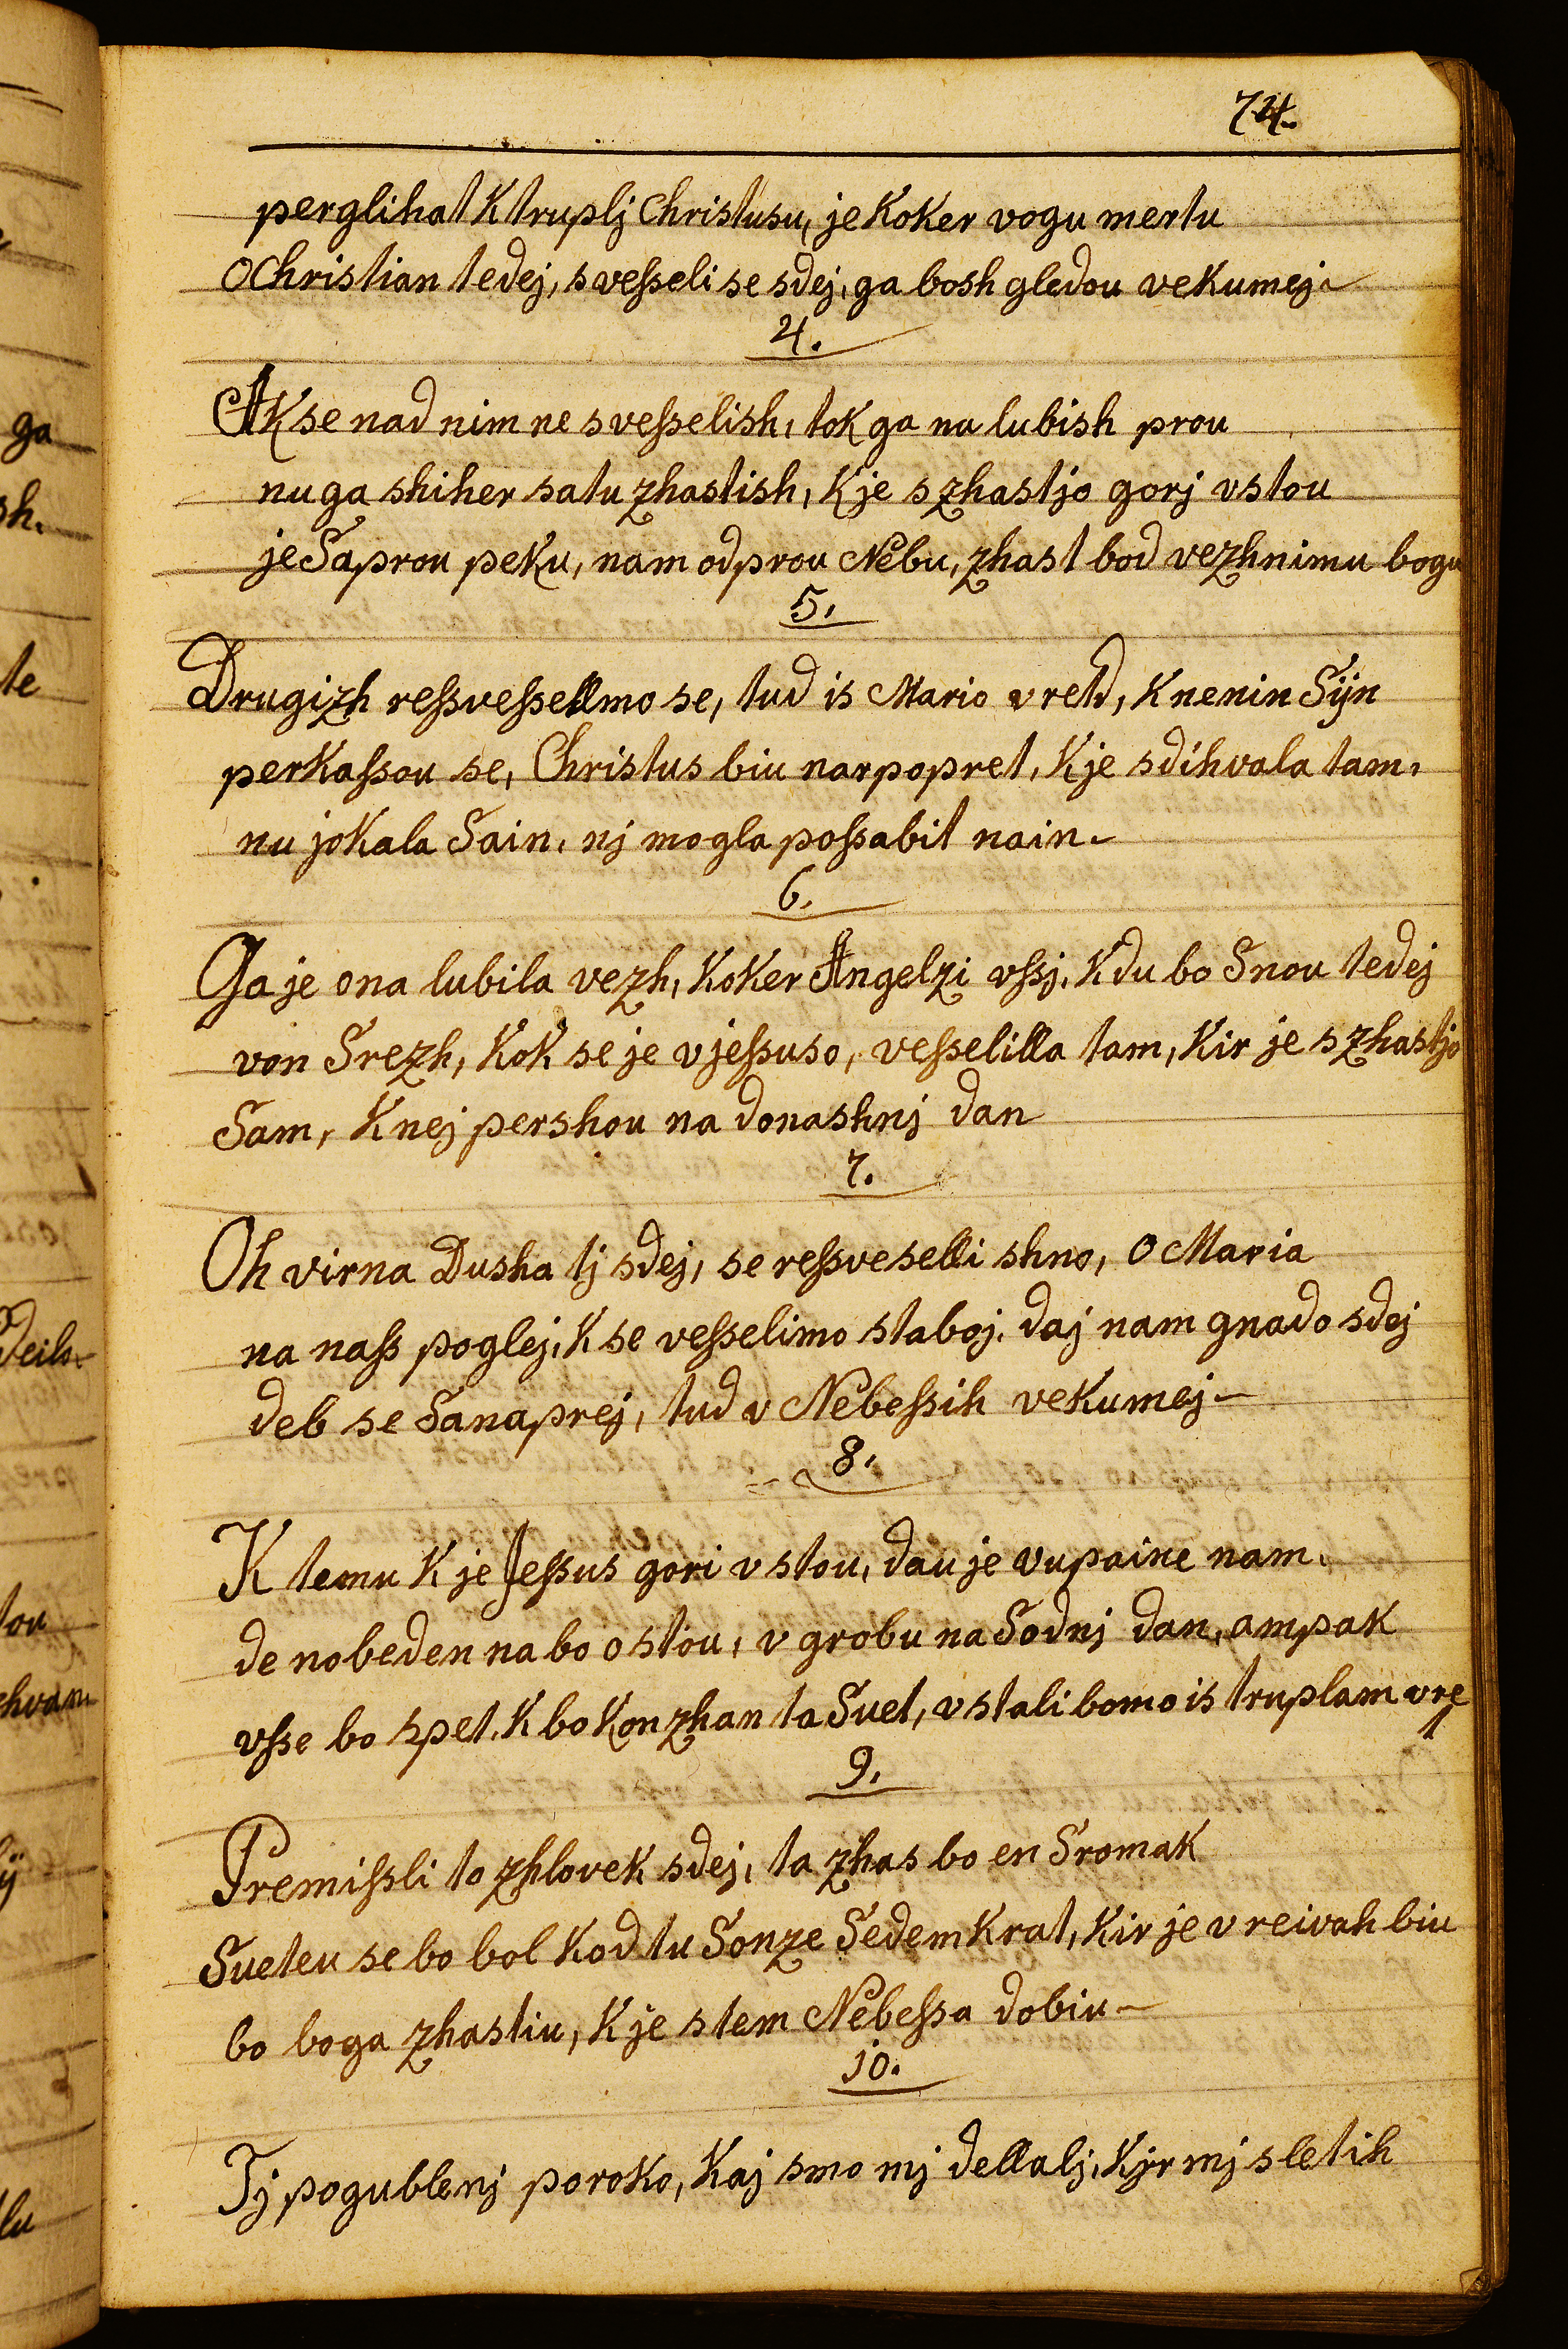 74.
perglihat K truplj Christusu, je Koker vogu mertu
O Christian tedej, svesseli se sdej, ga bosh gledou vekumej
4.
AK se nad nim ne svesselish, tok ga na lubish prou
nu ga shiher satu zhastish, K je s zhastjo gorj vstou
je Saprou peKu, nam odprou Nebu, zhast bod vezhnimu bogu
5.
Drugizh ressvessellmo se, tud is Mario vretd, K nenin Sÿn
perKassou se, Christus biu narpopret, K je sdihvala tam,
nu joKala Sain, nj mogla possabit nain
6.
Ga je ona lubila vezh, KoKer Angelzi vssj, K du bo Snou tedej
von Srezh, KoK se je vjessuso, vesselilla tam, Kir je s zhastjo
Sam, K nej pershou na donashnj dan
7.
Oh virna Dusha tj sdej, se ressveselli shno, O Maria
na nass poglej, K se vesselimo staboj, daj nam gnado sdej
deb se Sanaprej, tud v Nebessih vekumej
8.
K temu K je Jessus gori vstou, dau je vupaine nam,
de nobeden na bo ostou, v grobu na Sodnj dan, ampak
vsse bo spet, K bo Konzhan ta Suet, vstali bomo is truplam vre
t
9.
Premissli to zhlovek sdej, ta zhas bo en SromaK
Sueteu se bo bol Kod tu Sonze SedemKrat, Kir je v reivah biu
bo boga zhastiu, K je stem Nebessa dobiu
10.
Tj pogublenj poroKo, Kaj smo mj dellalj, Kjr mj sletih
ga
sh.
te
tou
ÿ
lu